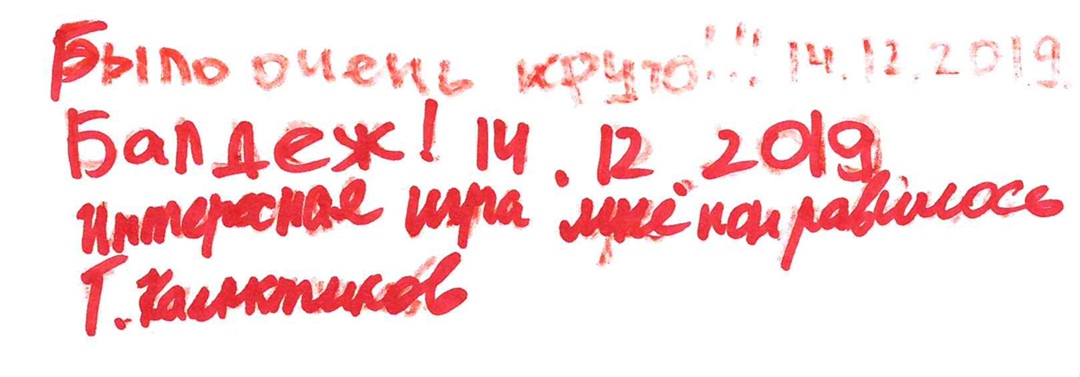 Было очень круто!!! 14.12.2019.
Балдеж! 14.12.2019
Интересная игра мне понравилось
Т.